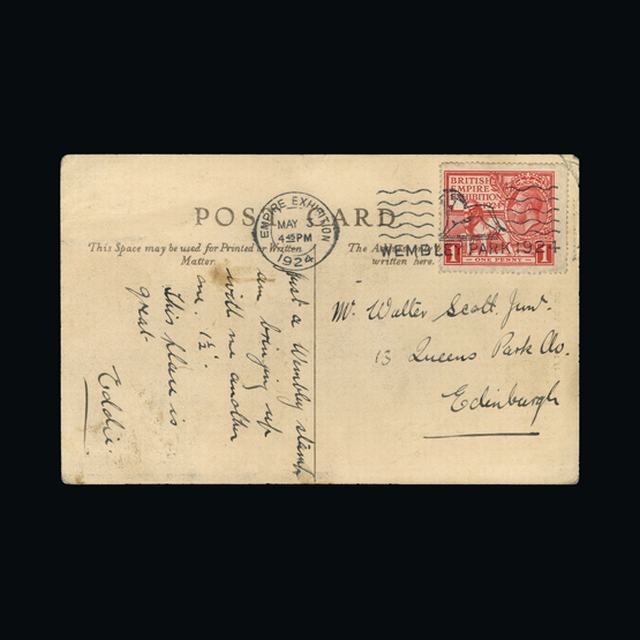 POST CARD
This Space may be used for Printed or Written
Matter.
The
written here.
EMPIRE EXHIBITION
MAY
4-45PM
1924
WEMBLEY PARK 1924
BRITISH
EMPIRE
EXHIBITION
1924
1 ONE PENNY 1
Just a Wembly stamp
am bringing up
with me another
one. 1½
This place is
great.
Eddie.
Mr. Walter Scott. Junr.
13 Queens Park Av.
Edinburgh